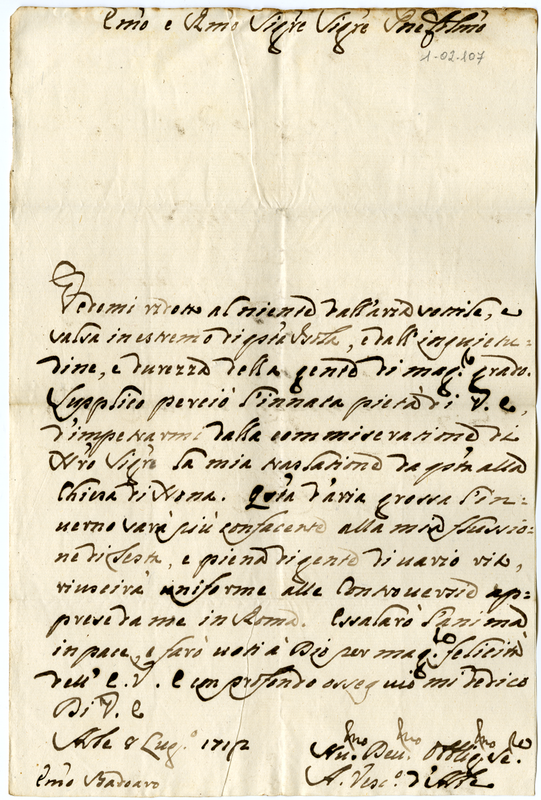 Emo e Rmo Sigre Sigre Pne Colmo
1-02-107
Vedomi ridotto al niente dall'aria sottile, e
salsa in estremo di qsta Isola, e dall'inquietu=
dine, e durezza della gente di magr grado.
Supplico perciò l'innata pietà di V. E,
d'impetrarmi dalla commiseratione di
Nro Sigre la mia traslatione da qsta alla
Chiesa di Nona. Qsta d'aria grossa l'in=
uerno sarà più confacente alla mia flussio=
ne di testa, e piena di gente di uario rito,
riuscirà uniforme alle Controuersie ap=
prese da me in Roma. Essalarò l'anima
in pace, e farò uoti à Dio per magr felicità
dell' E. V. E con profondo ossequio mi dedico
Di V. E
Arbe 8 Lugo 1712
Hu. Deu. Obblig. Se.
A. Vesco d'Arbe
Emo Badoaro